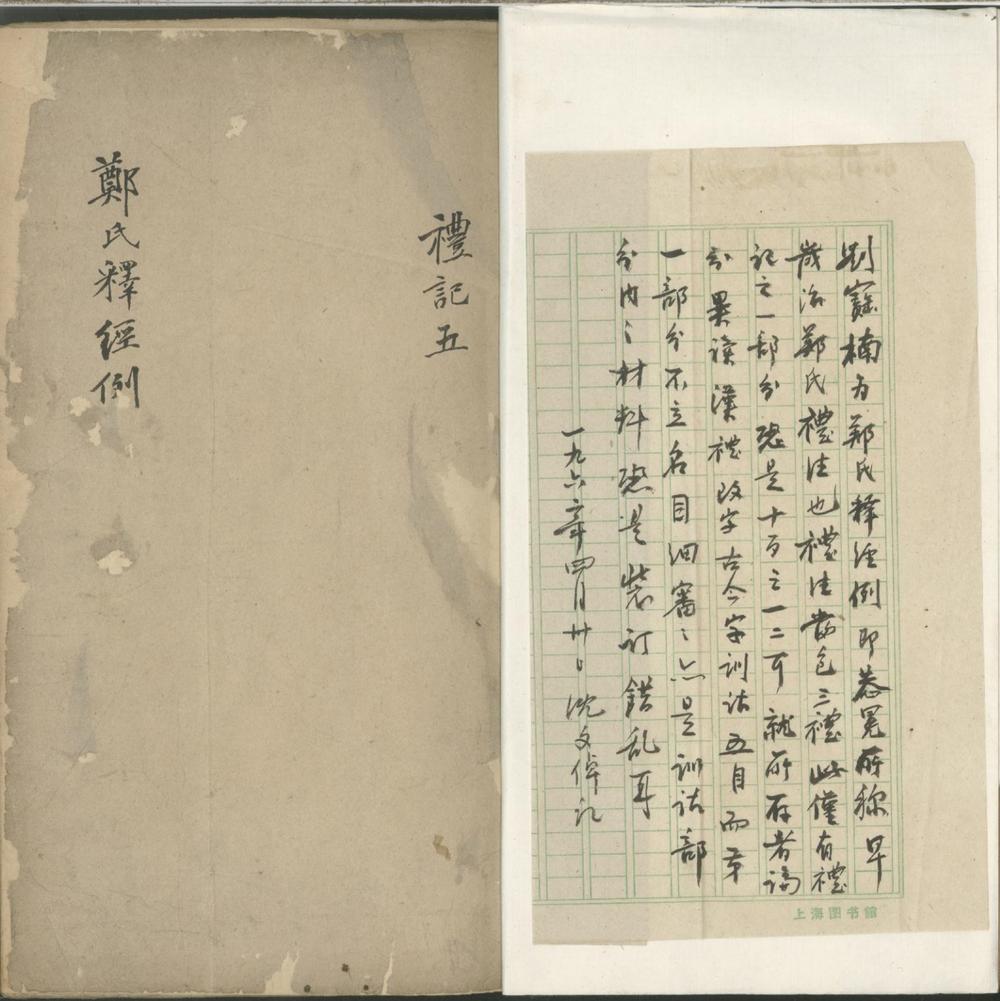 禮記五
鄭氏釋經例
劉寳楠为鄭氏释经例即恭冕所称早
歲治鄭氏禮注也禮注當包三禮此僅有禮
記之一部分恐是十百之一二耳就所存者論
分異讀漢禮改字古今字訓詁五目而第
一部分不立名目细審之亦是訓詁部
分内之材料恐是裝訂錯乱耳
一九六二年四月廿日沈文倬記
上海图书館